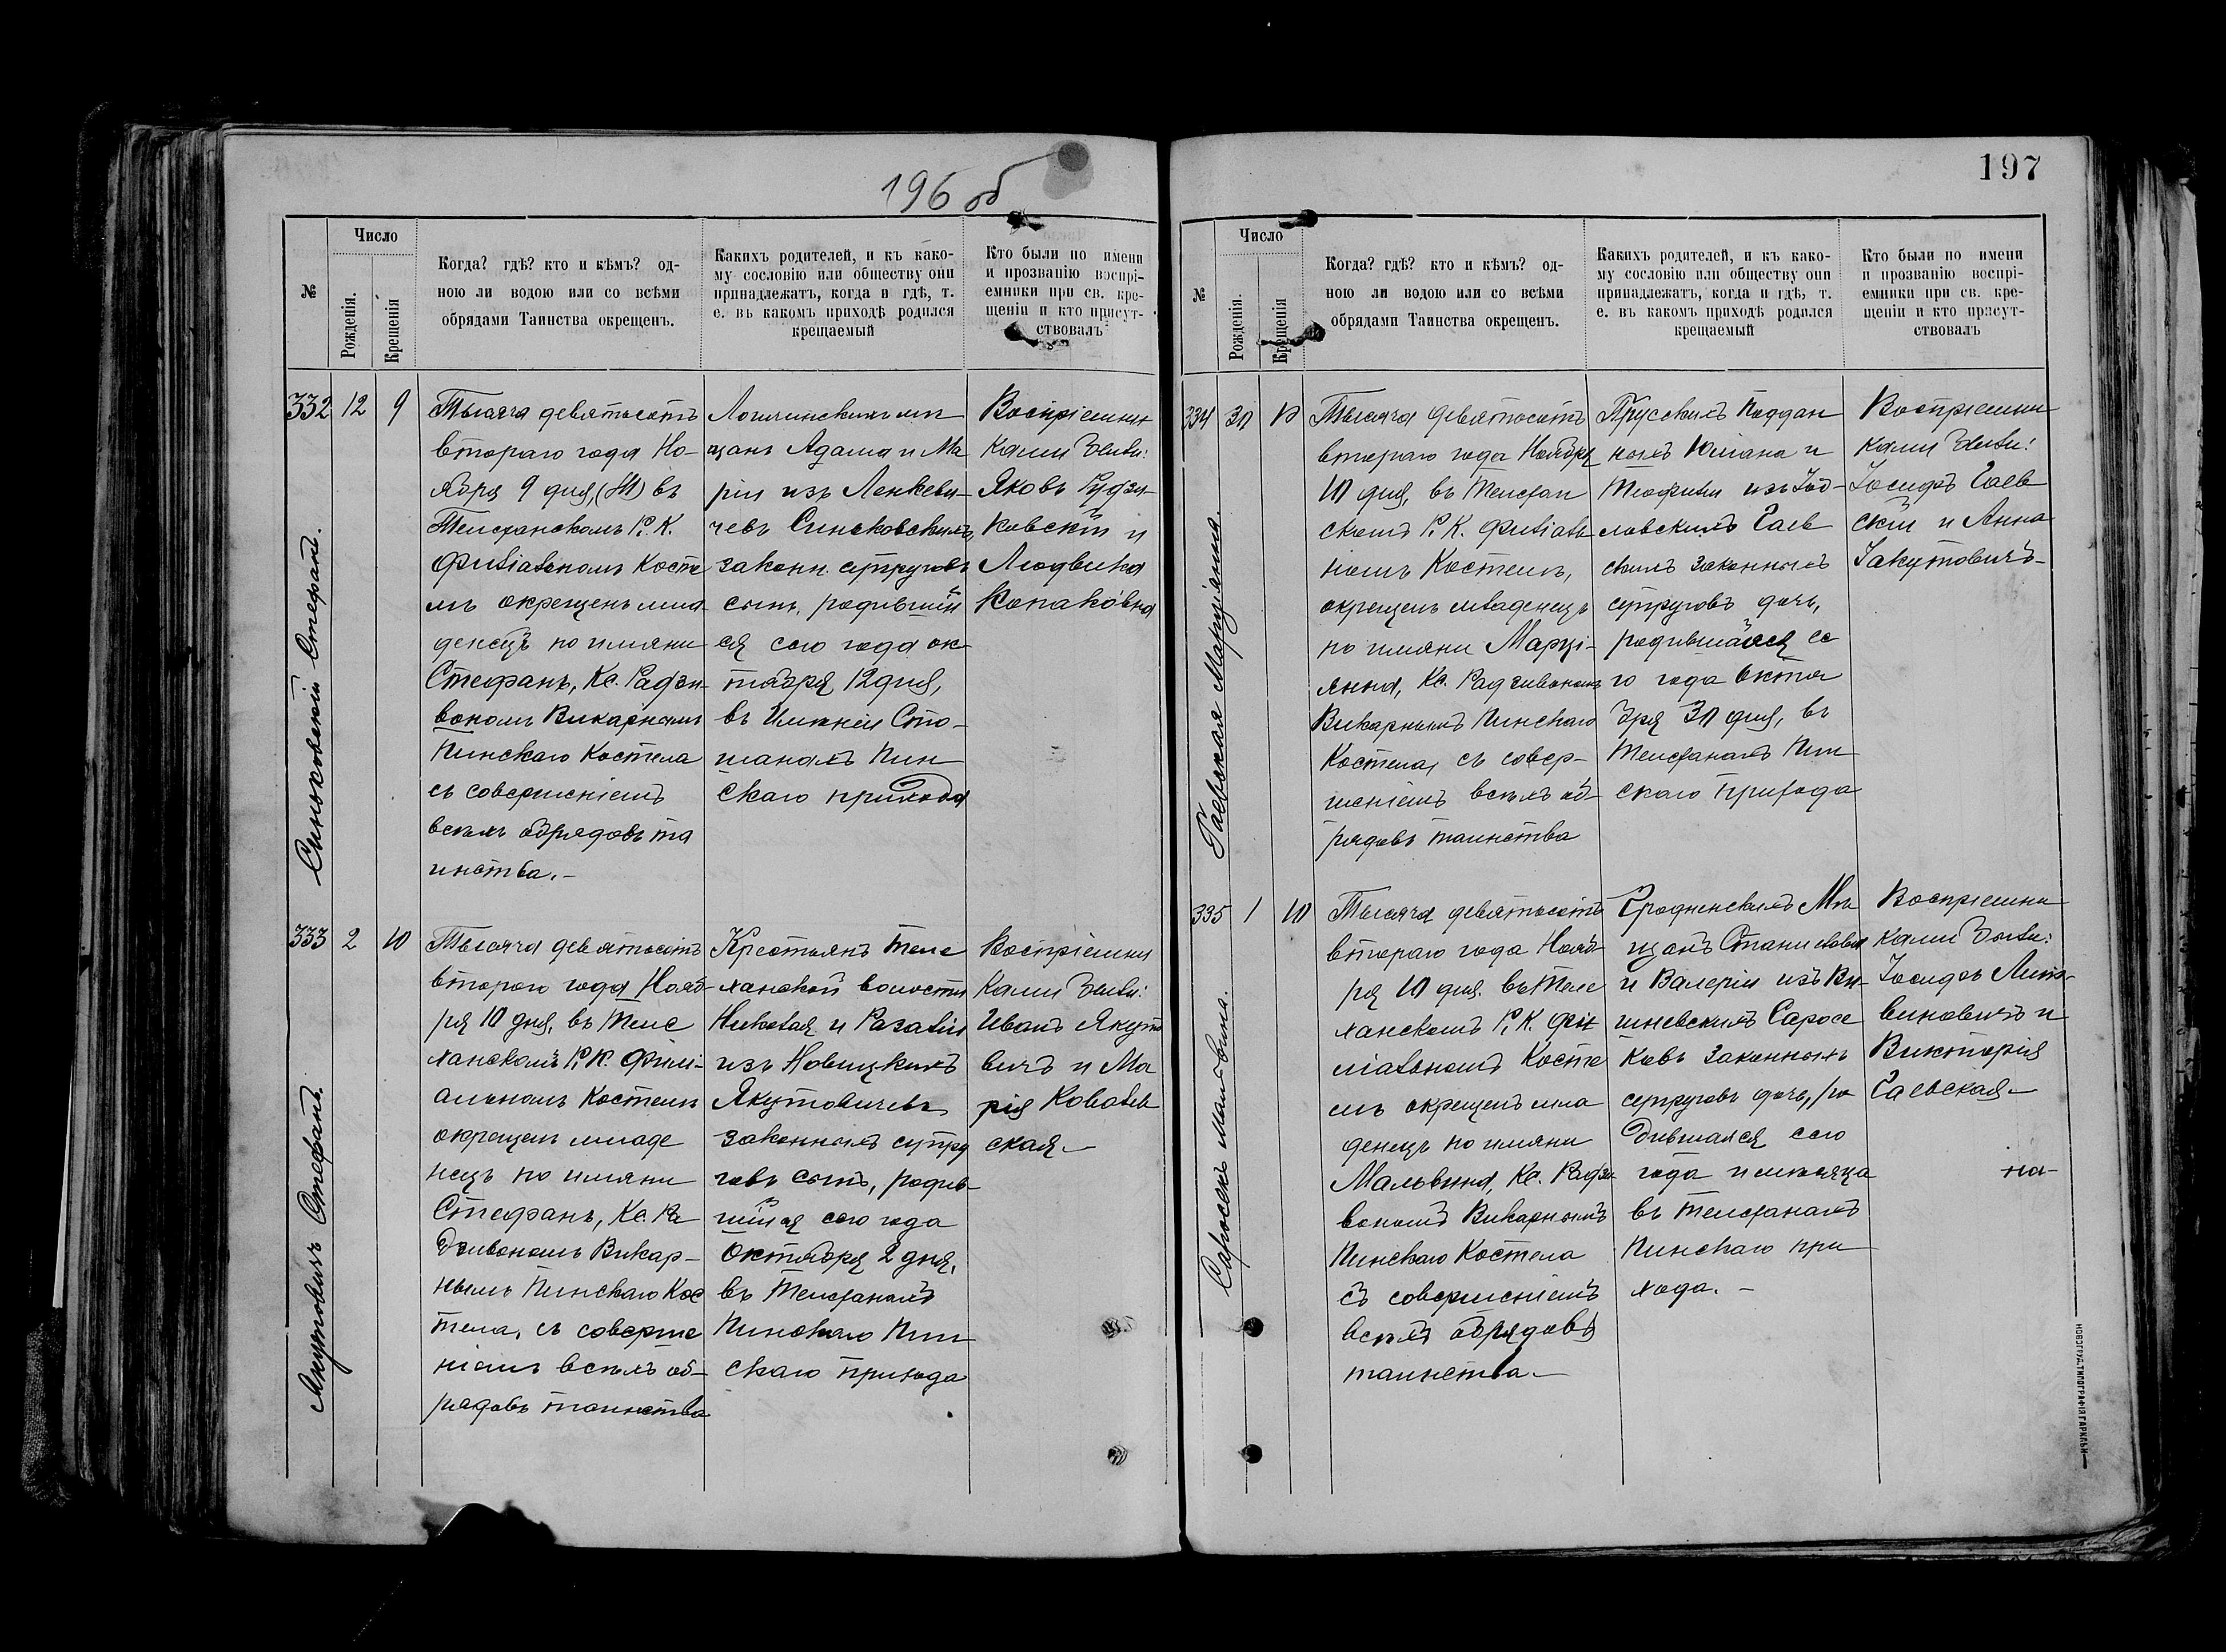 196 об
№
Число
Рожденія.
Крещенія
Когда? гдѣ? кто и кѣмъ? од-
ною ли водою или со всѣми
обрядами Таинства окрещенъ.
Какихъ родителей, и къ како-
му сословію или обществу они
принадлежатъ, когда и гдѣ, т.
е. въ какомъ приходѣ родился
крещаемый
Кто были по имени
и прозванію воспрі-
емники при св. кре-
щеніи и кто присут-
ствовалъ
332
Синьковскій Стефанъ.
12
9
Тысяча девятьсотъ
втораго года Но-
ября 9 дня, въ
Телеханскомъ Р. К.
Филіальномъ Косте
лѣ окрещенъ мла
денецъ по имяни
Стефанъ, Кс. Радзи-
вономъ Викарнымъ
Пинскаго Костела
съ совершеніемъ
всѣхъ обрядовъ та
инства.-
Логишинскихъ мѣ
щанъ Адама и Ма
ріи изъ Ленкеви-
чевъ Синьковскихъ,
законн. супруговъ
сынъ, родившій
ся сего года ок
тября 12 дня,
въ Имѣніи Сто-
шанахъ Пин
скаго прихода
Воспріемни
ками были:
Яковъ Гудзи-
ковскій и
Людвика
333
Якутовичъ Стефанъ.
2
10
Тысяча девятьсотъ
втораго года Нояб-
ря 10 дня, въ Теле
ханскомъ Р. К. Филі-
альномъ Костелѣ
окрещенъ младе
нецъ по имяни
Стефанъ, Кс. Ра
дзивономъ Викар-
нымъ Пинскаго Кос
тела, съ соверше
ніемъ всѣхъ об-
рядовъ таинства
Крестьянъ Теле
ханской волости
Николая и Розаліи
изъ Новицкихъ
Якутовичевъ
законныхъ супру
говъ сынъ, родив-
шійся сего года
Октября 2 дня,
въ Телеханахъ
Пинскаго Пин
скаго прихода
Воспріемни
ками были:
Иванъ Якуто
вичъ и Ма
рія Коваль
ская.-
197
№
Число
Рожденія.
Крещенія
Когда? гдѣ? кто и кѣмъ? од-
ною ли водою или со всѣми
обрядами Таинства окрещенъ.
Какихъ родителей, и къ како-
му сословію или обществу они
принадлежатъ, когда и гдѣ, т.
е. въ какомъ приходѣ родился
крещаемый
Кто были по имени
и прозванію воспрі-
емники при св. кре-
щеніи и кто присут-
ствовалъ
334
Гаевская Марціянна.
30
10
Тысяча девятьсотъ
втораго года Ноября
10 дня, въ Телехан
скомъ Р. К. Филіаль
номъ Костелѣ,
окрещенъ младенецъ
по имяни Марці-
янна, Кс. Радзивономъ
Викарнымъ Пинскаго
Костела, съ совер-
шеніемъ всѣхъ об-
рядовъ таинства
Прусскихъ поддан
ныхъ Юліана и
Теофиліи изъ
ловскихъ Гаев
скихъ законныхъ
супруговъ дочь,
родившаяся се
го года Октя
бря 30 дня, въ
Телеханахъ Пин
скаго прихода
Воспріемни
ками были:
Іосифъ Гаев
скій и Анна
Якутовичъ-
335
Саросекъ Мальвина.
1
10
Тысяча девятьсотъ
втораго года Нояб-
ря 10 дня въ Теле
ханскомъ Р. К. Фи
ліальномъ Косте
лѣ окрещенъ мла
денецъ по имяни
Мальвина, Кс. Радзи
вономъ Викарнымъ
Пинскаго Костела
съ совершеніемъ
всѣхъ обрядовъ
таинства.-
Гродненскихъ Мѣ
щанъ Станислава
и Валеріи изъ Ви-
шневскихъ Саросе
ковъ законныхъ
супруговъ дочь, ро
дившаяся сего
года и мѣсяца
въ Телеханахъ
Пинскаго при
хода.-
Воспріемни
ками были:
Іосифъ Лит-
виновичъ и
Викторія
Гаевская-
на-
НОВОГРУД. ТИПОГРАФІЯ